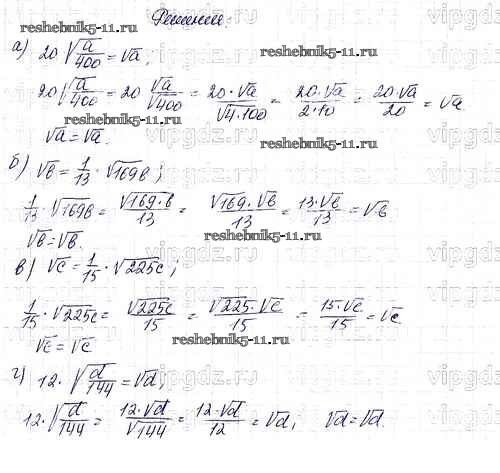 Решение:
reshebnik5-11.ru
а) 20 √(a/400) = √a;
reshebnik5-11.ru
20√(a/400) = 20 √a/√400 = 20·√a/√(4·100) = 20·√a/(2·10) = 20·√a/20 = √a
√a = √a.
reshebnik5-11.ru
б) √b = 1/13 · √169b;
1/13 · √169b = √(169·b)/13 = √169·√b/13 = 13·√b/13 = √b
√b = √b.
reshebnik5-11.ru
в) √c = 1/15 · √225c;
1/15 · √225c = √225c/15 = √225·√c/15 = 15·√c/15 = √c
√c = √c
reshebnik5-11.ru
г) 12 · √(d/144) = √d;
12·√(d/144) = 12·√d/√144 = 12·√d/12 = √d; √d = √d.
vipgdz.ru